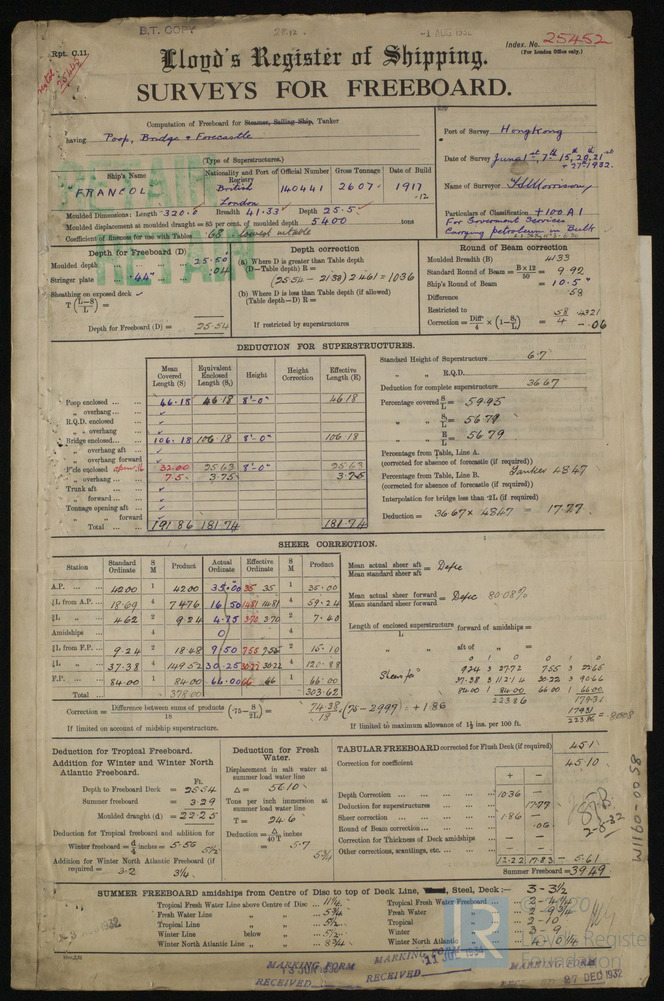 B.T. COPY
-1 AUG 1932
Rpt. C.11.
Index. No. 25452
(For London Office only.)
Lloyd's Register of Shipping.
SURVEYS FOR FREEBOARD.
Computation of Freeboard for Steamer, Sailing Ship, Tanker
having Poop, Bridge & Forecastle
(Type of Superstructures.)
Port of Survey Hongkong
Date of Survey June 1st, 7th, 15th, 20th, 21st
& 27th 1932.
Name of Surveyor
Particulars of Classification +100A1
For Government Services
Carrying petroleum in Bulk
RETAIN
RETAIN
Ship's Name
Nationality and Port of Registry
Official Number
Gross Tonnage
Date of Build
"FRANCOL"
British
London
140441
2607
1917
-12
Moulded Dimensions: Length 320.0 Breadth 41.33 Depth 25.5
Moulded displacement at moulded draught = 85 per cent. of moulded depth 5400 tons
Coefficient of fineness for use with Tables .68 lowest in table
Depth for Freeboard (D)
Moulded depth 25.50
Stringer plate .44" .04
Sheathing on exposed deck
T (L-S / L) =
Depth for Freeboard (D) = 25.54
Depth correction
(a) Where D is greater than Table depth
(D-Table depth) R =
(25.54 - 21.33) 2.461 = 10.36
(b) Where D is less than Table depth (if allowed)
(Table depth-D) R =
If restricted by superstructures
Round of Beam correction
Moulded Breadth (B) 41.33
Standard Round of Beam = B×12 / 50 = 9.92
Ship's Round of Beam = 10.5"
Difference .58
Restricted to
Correction = Diff / 4 × (1 - S₁ / L) = .58 / 4 .4321 = -.06
DEDUCTION FOR SUPERSTRUCTURES.
Mean Covered Length (S)
Equivalent Enclosed Length (S₁)
Height
Height Correction
Effective Length (E)
Poop enclosed 46.18 46.18 8'-0" 46.18
„ overhang
R.Q.D. enclosed
„ overhang
Bridge enclosed 106.18 106.18 8'-0" 106.18
„ overhang aft
„ overhang forward
F'cle enclosed 32.00 25.63 8'-0" 25.63
„ overhang 7.5 3.75 3.75
Trunk aft
„ forward
Tonnage opening aft
„ „ forward
Total 191.86 181.74 181.74
Standard Height of Superstructure 6.7
„ „ R.Q.D.
Deduction for complete superstructure 36.67
Percentage covered S / L = 59.95
„ S₁ / L = 56.79
„ E / L = 56.79
Percentage from Table, Line A.
(corrected for absence of forecastle (if required))
Percentage from Table, Line B. Tanker 48.47
(corrected for absence of forecastle (if required))
Interpolation for bridge less than ·2L (if required)
Deduction = 36.67 × 48.47 = 17.77
SHEER CORRECTION.
Station
Standard Ordinate
S M
Product
Actual Ordinate
Effective Ordinate
S M
Product
A.P. 42.00 1 42.00 35.00 35 35 1 35.00
⅙L from A.P. 18.69 4 74.76 16.50 14.81 14.81 4 59.24
⅓L „ 4.62 2 9.24 4.75 3.70 3.70 2 7.40
Amidships 4 0 4
⅓L from F.P. 9.24 2 18.48 9.50 7.55 7.55 2 15.10
⅙L „ 37.38 4 149.52 30.25 30.22 30.22 4 120.88
F.P. 84.00 1 84.00 66.00 66 66 1 66.00
Total 378.00 303.62
Mean actual sheer aft / Mean standard sheer aft = Defic
Mean actual sheer forward / Mean standard sheer forward = Defic 80.08%
Length of enclosed superstructure / L forward of amidships =
„ „ aft of „ =
0 1 0 0 1 0
9.24 3 27.72 7.55 3 22.65
37.38 3 112.14 30.22 3 90.66
84.00 1 84.00 66.00 1 66.00
223.86 179.31
179.31 / 223.86 = .8008
Correction = Difference between sums of products / 18 (·75 - S / 2L) = 74.38 / 18 (.75 - .2997) = +1.86
If limited on account of midship superstructure.
If limited to maximum allowance of 1½ ins. per 100 ft.
Deduction for Tropical Freeboard.
Addition for Winter and Winter North Atlantic Freeboard.
Ft.
Depth to Freeboard Deck = 25.54
Summer freeboard = 3.29
Moulded draught (d) = 22.25
Deduction for Tropical freeboard and addition for
Winter freeboard = d / 4 inches = 5.56 5½
Addition for Winter North Atlantic Freeboard (if required) = 3.2 3¼
Deduction for Fresh Water.
Displacement in salt water at summer load water line
Δ = 5610
Tons per inch immersion at summer load water line
T = 24.6
Deduction = Δ / 40T inches
= 5.7
5¾
TABULAR FREEBOARD corrected for Flush Deck (if required) 45.1
Correction for coefficient 45.10
+ -
Depth Correction 10.36 -
Deduction for superstructures 17.77
Sheer correction 1.86 -
Round of Beam correction .06
Correction for Thickness of Deck amidships - -
Other corrections, scantlings, etc. - -
12.22 17.83 - 5.61
Summer Freeboard = 39.49
2-8-32
W1160-0058
SUMMER FREEBOARD amidships from Centre of Disc to top of Deck Line, Steel, Deck:- 3 - 3½
Tropical Fresh Water Line above Centre of Disc 11¼
Fresh Water Line „ „ 5¾
Tropical Line „ „ 5½
Winter Line below „ 5½
Winter North Atlantic Line „ „ 8¾
Tropical Fresh Water Freeboard 2 - 4¼
Fresh Water „ 2 - 9¾
Tropical „ 2 - 10
Winter „ 3 - 9
Winter North Atlantic „
MARKING FORM
RECEIVED
MARKING FORM
RECEIVED
11 JUN 1934
MARKING FORM
RECEIVED
27 DEC 1932
LR
Lloyd's Register
Foundation